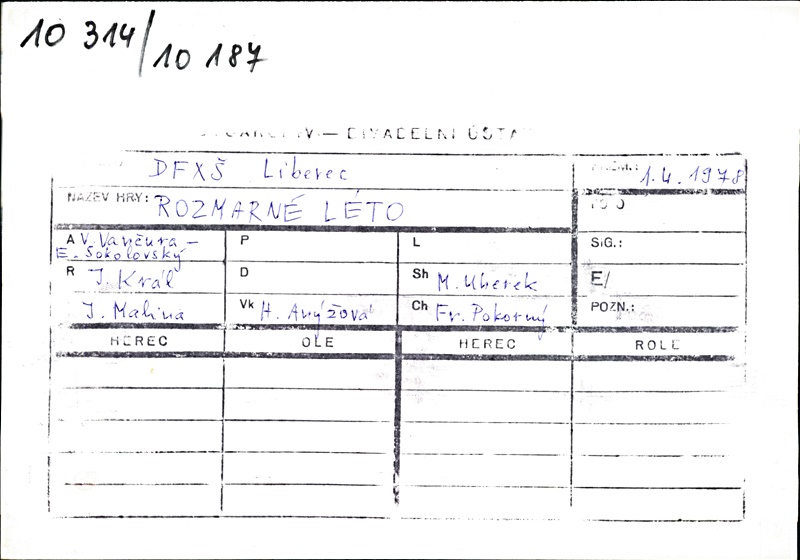 10 314/10 187
DIVADELNÍ ÚSTA
DFXŠ Liberec
1.4.1978
NÁZEV HRY: ROZMARNÉ LÉTO
A V. Vančura – E. Sokolovský
P
L
SIG.:
R J. Král
D
Sh M. Uherek
E/
J. Malina
Vk H. Anýžová
Ch Fr. Pokorný
POZN.:
HEREC OLE HEREC ROLE